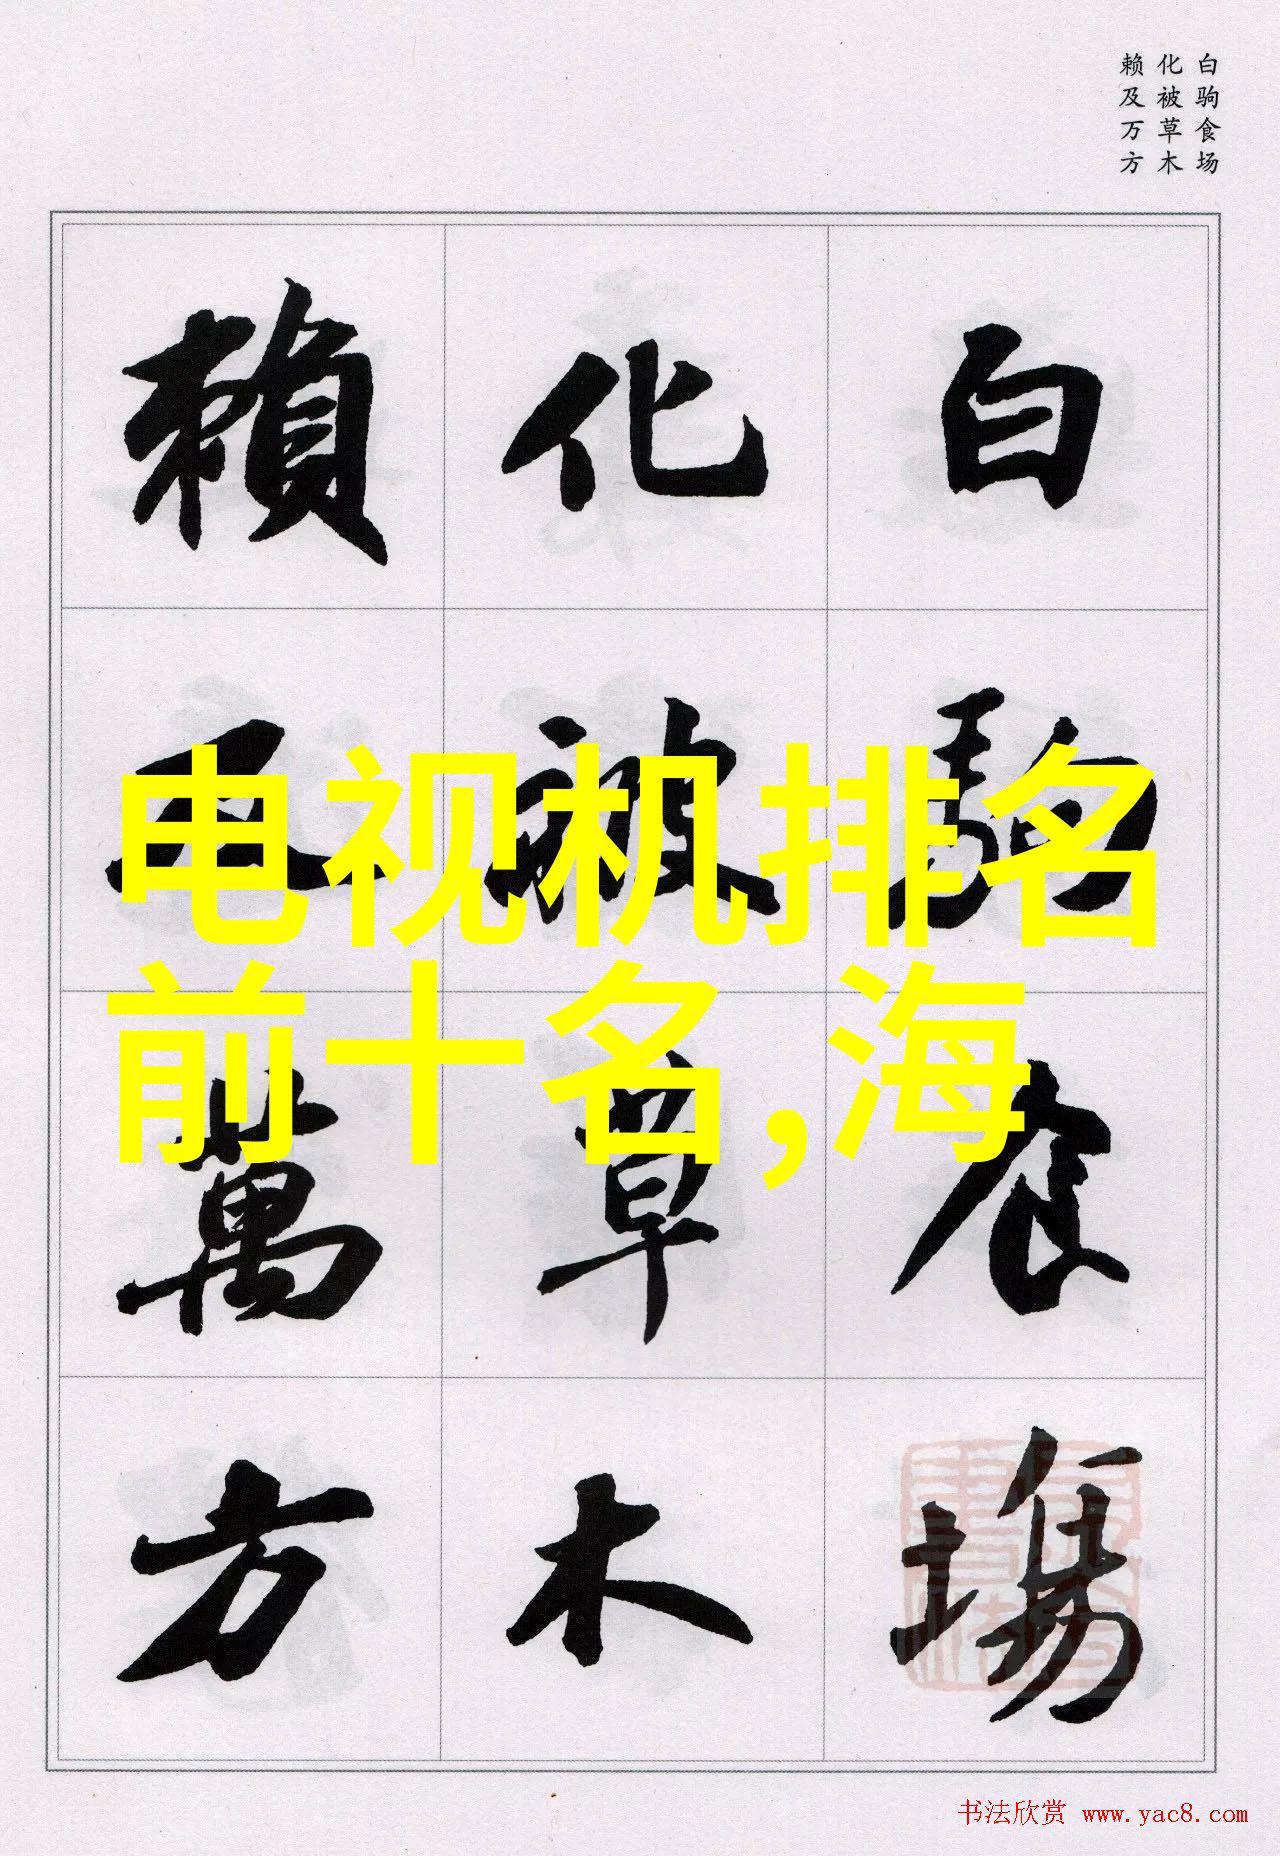 白驹食场
化被草木
赖及万方
白駒食場
化被草木
賴及萬方
电视机排名
前十名,海
书法欣赏 www.yac8.com